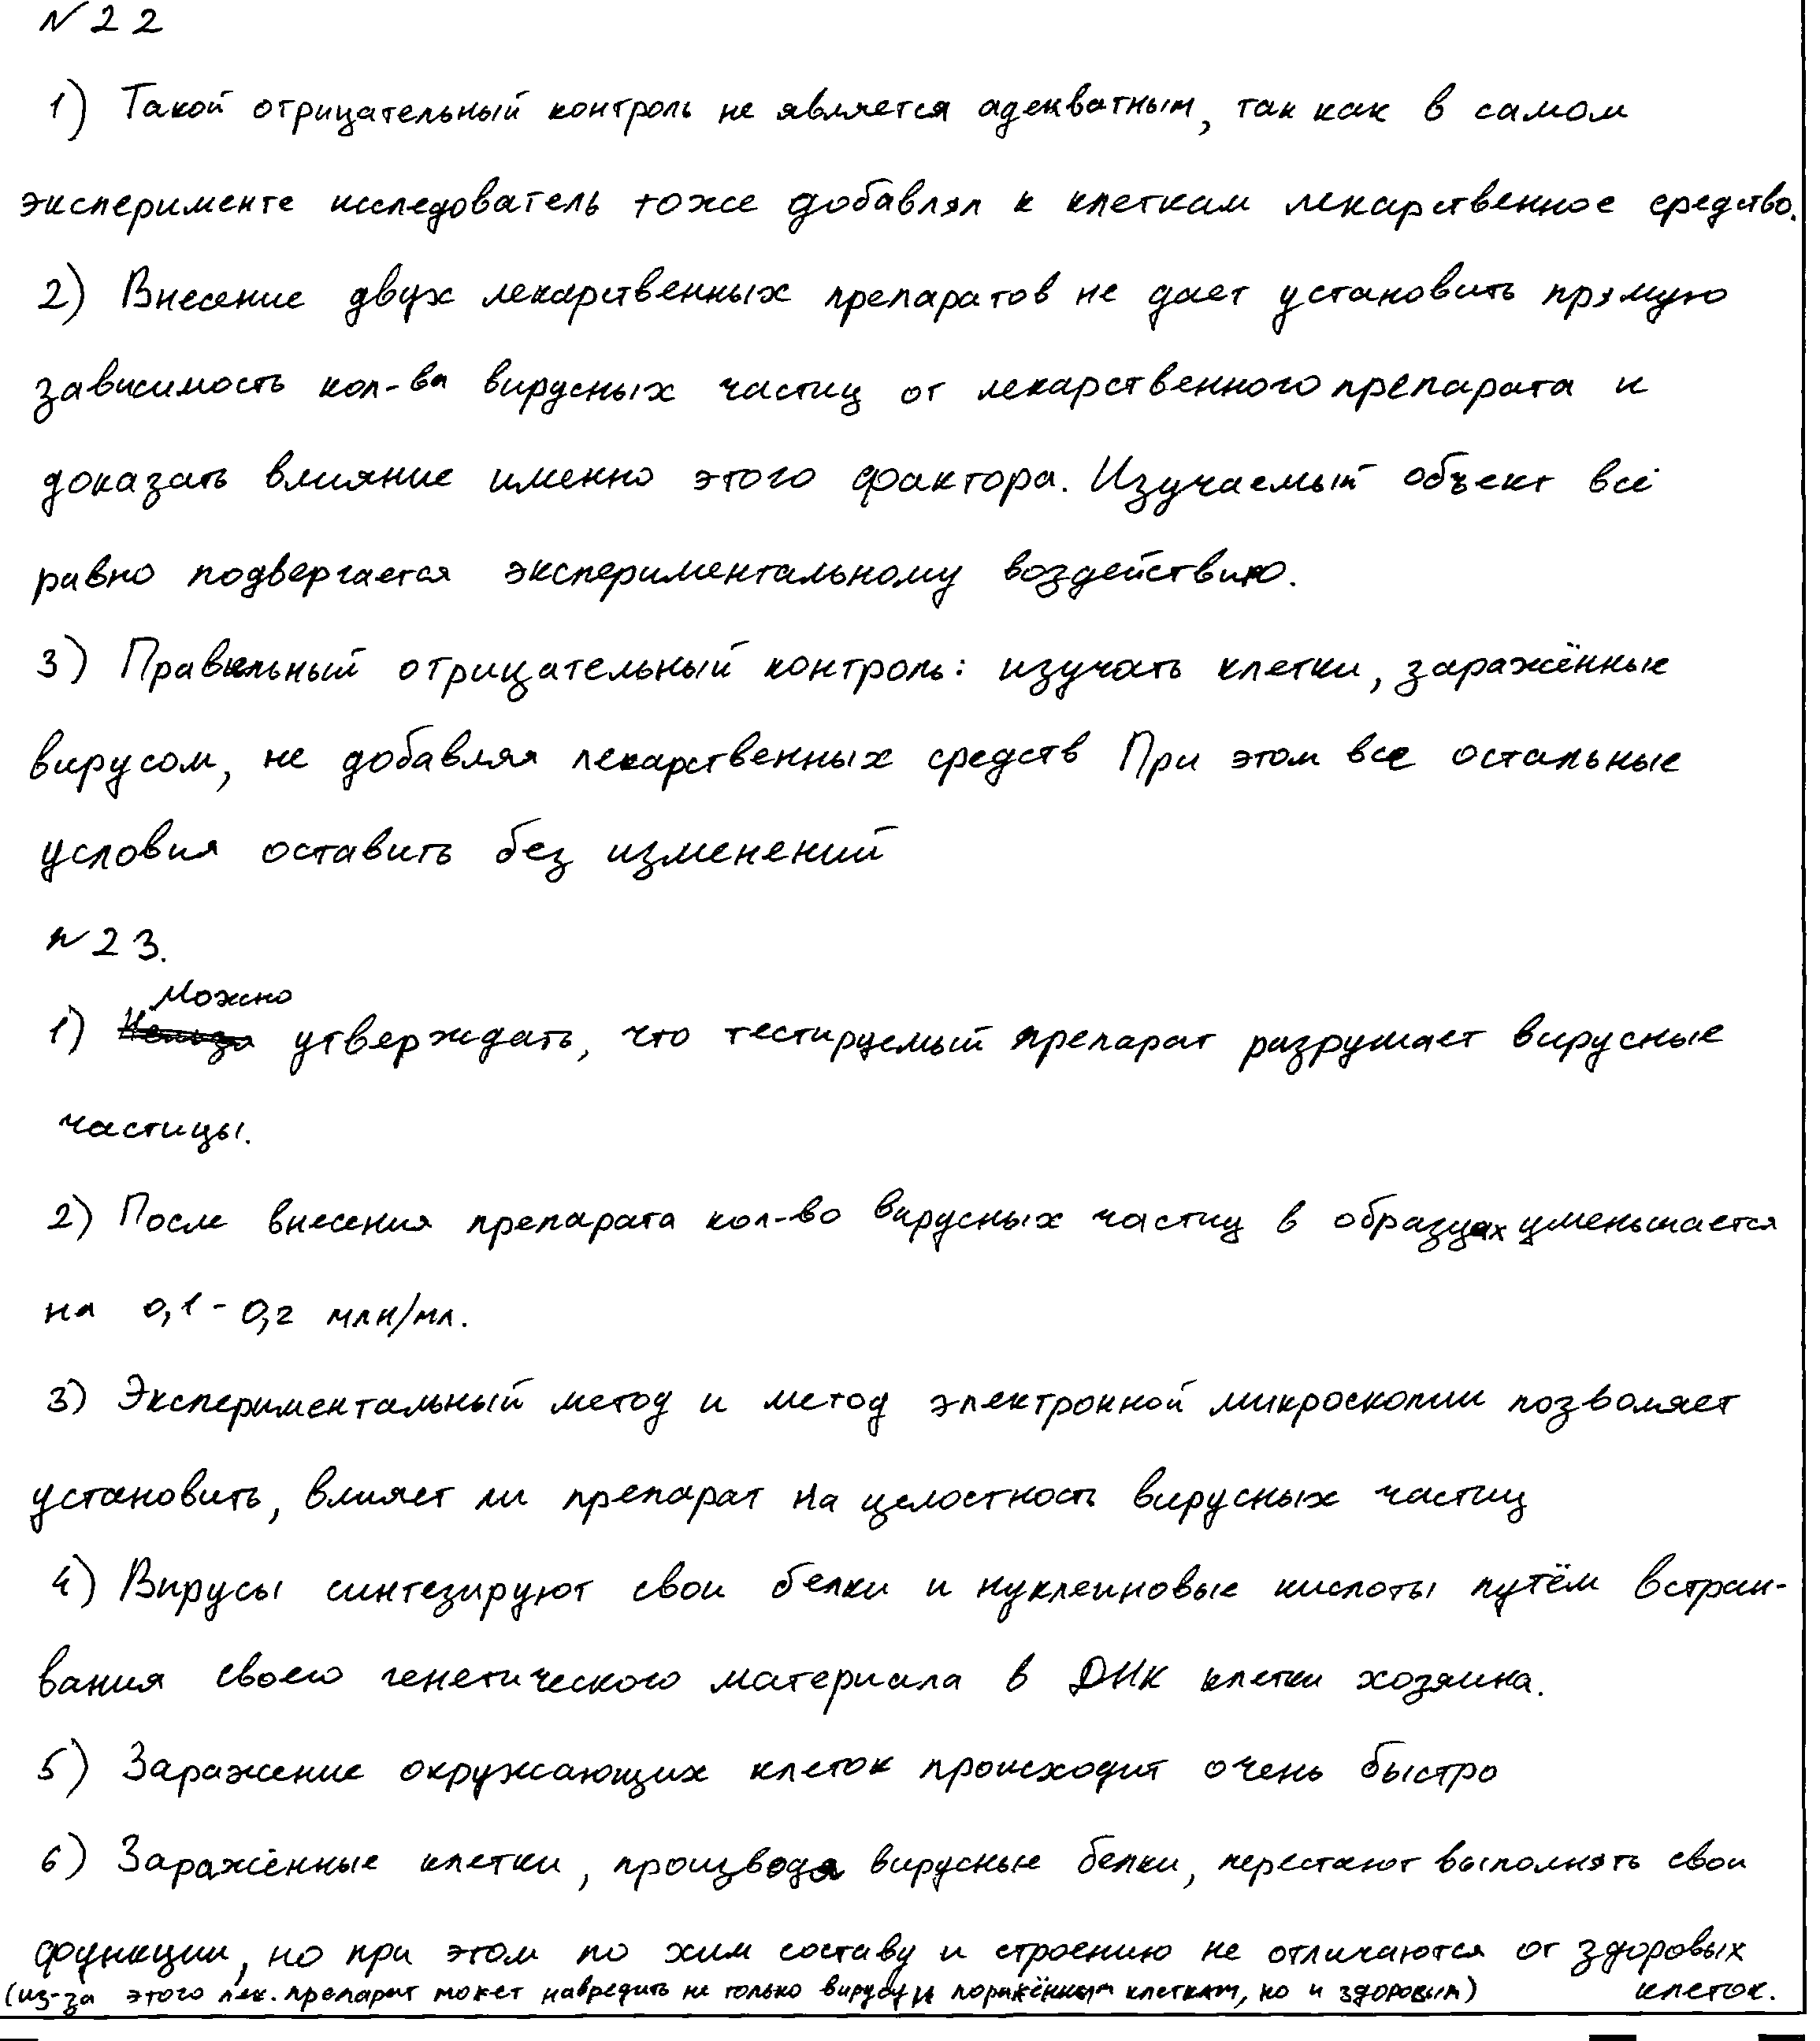 №22
1) Такой отрицательный контроль не является адекватным, так как в самом
эксперименте исследователь тоже добавлял к клеткам лекарственное средство.
2) Внесение двух лекарственных препаратов не дает установить прямую
зависимость кол-ва вирусных частиц от лекарственного препарата и
доказать влияние именно этого фактора. Изучаемый объект всё
равно подвергается экспериментальному воздействию.
3) Правильный отрицательный контроль: изучать клетки, заражённые
вирусом, не добавляя лекарственных средств При этом все остальные
условия оставить без изменений
№23.
Можно
1) Нельзя утверждать, что тестируемый препарат разрушает вирусные
частицы.
2) После внесения препарата кол-во вирусных частиц в образцах уменьшается
на 0,1 - 0,2 млн/мл.
3) Экспериментальный метод и метод электронной микроскопии позволяет
установить, влияет ли препарат на целостность вирусных частиц
4) Вирусы синтезируют свои белки и нуклеиновые кислоты путём встраи-
вания своего генетического материала в ДНК клетки хозяина.
5) Заражение окружающих клеток происходит очень быстро
6) Заражённые клетки, производя вирусные белки, перестают выполнять свои
функции, но при этом по хим составу и строению не отличаются от здоровых
(из-за этого лек. препарат может навредить не только вирусу и поражённым клеткам, но и здоровым) клеток.